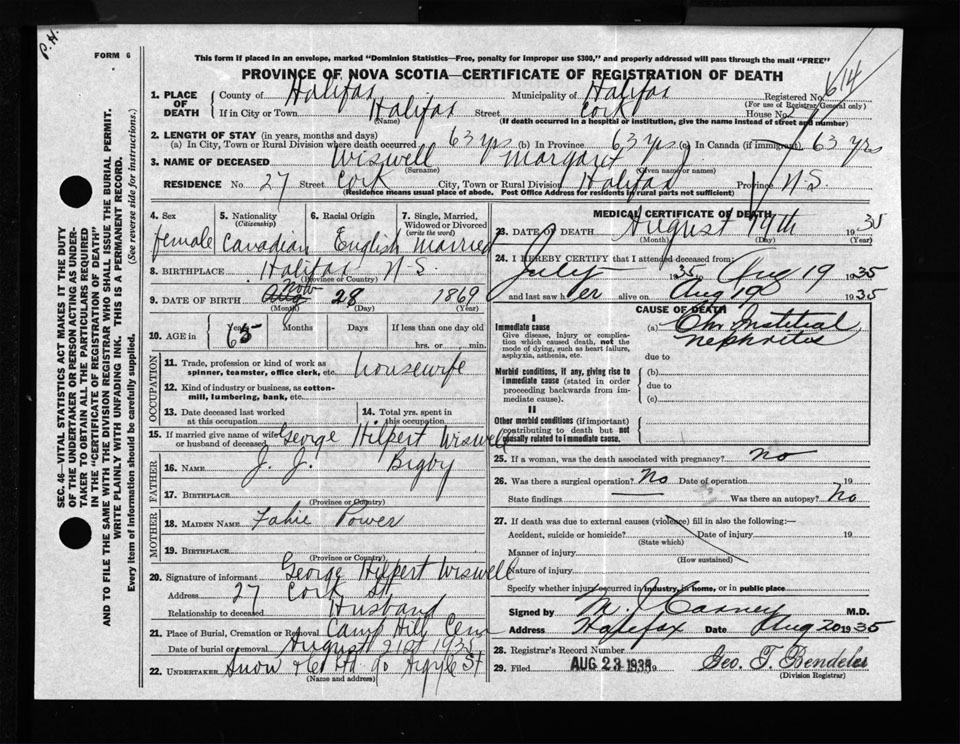 P.H.
FORM 6
This form if placed in an envelope, marked "Dominion Statistics—Free, penalty for improper use $300," and properly addressed will pass through the mail "FREE"
PROVINCE OF NOVA SCOTIA—CERTIFICATE OF REGISTRATION OF DEATH
614
SEC. 46—VITAL STATISTICS ACT MAKES IT THE DUTY
OF THE UNDERTAKER OR PERSON ACTING AS UNDER-
TAKER TO OBTAIN ALL THE PARTICULARS REQUIRED
IN THE "CERTIFICATE OF REGISTRATION OF DEATH"
AND TO FILE THE SAME WITH THE DIVISION REGISTRAR WHO SHALL ISSUE THE BURIAL PERMIT.
WRITE PLAINLY WITH UNFADING INK. THIS IS A PERMANENT RECORD.
Every item of information should be carefully supplied. (See reverse side for instructions.)
1. PLACE OF DEATH County of Halifax Municipality of Halifax Registered No.
(For use of Registrar General only)
If in City or Town Halifax Street Cork House No. 27
(Name) (If death occurred in a hospital or institution, give the name instead of street and number)
2. LENGTH OF STAY (in years, months and days)
(a) In City, Town or Rural Division where death occurred 63 yrs (b) In Province 63 yrs (c) In Canada (if immigrant) 63 yrs
3. NAME OF DECEASED Wiswell Margaret
(Surname) (Given name or names)
RESIDENCE No. 27 Street Cork City, Town or Rural Division Halifax Province N.S.
(Residence means usual place of abode. Post Office Address for residents in rural parts not sufficient)
4. Sex female
5. Nationality (Citizenship) Canadian
6. Racial Origin English
7. Single, Married, Widowed or Divorced (write the word) Married
8. BIRTHPLACE Halifax N.S.
(Province or Country)
9. DATE OF BIRTH Aug Nov 28 1869
(Month) (Day) (Year)
10. AGE in Years 65 Months Days If less than one day old
hrs. or min.
OCCUPATION
11. Trade, profession or kind of work as spinner, teamster, office clerk, etc. Housewife
12. Kind of industry or business, as cotton-mill, lumbering, bank, etc.
13. Date deceased last worked at this occupation
14. Total yrs. spent in this occupation
15. If married give name of wife or husband of deceased George Hilpert Wiswell
FATHER
16. NAME J. J. Bigby
17. BIRTHPLACE
(Province or Country)
MOTHER
18. MAIDEN NAME Fahie Power
19. BIRTHPLACE
(Province or Country)
20. Signature of informant George Hilpert Wiswell
Address 27 Cork St
Relationship to deceased Husband
21. Place of Burial, Cremation or Removal Camp Hill Cem
Date of burial or removal August 21st 1935
22. UNDERTAKER Snow & Co Ltd 90 Argyle St
(Name and address)
MEDICAL CERTIFICATE OF DEATH
23. DATE OF DEATH August 19th 1935
(Month) (Day) (Year)
24. I HEREBY CERTIFY that I attended deceased from:
July 1935 Aug 19 1935
and last saw her alive on Aug 19 1935
CAUSE OF DEATH
I
Immediate cause
Give disease, injury or complication which caused death, not the mode of dying, such as heart failure, asphyxia, asthenia, etc.
(a) Chr Instital nephritis
due to
Morbid conditions, if any, giving rise to immediate cause (stated in order proceeding backwards from immediate cause).
(b)
due to
(c)
II
Other morbid conditions (if important) contributing to death but not causally related to immediate cause.
25. If a woman, was the death associated with pregnancy? no
26. Was there a surgical operation? No Date of operation 19
State findings — Was there an autopsy? No
27. If death was due to external causes (violence) fill in also the following:—
Accident, suicide or homicide? Date of injury 19
(State which)
Manner of injury
(How sustained)
Nature of injury
Specify whether injury occurred in industry, in home, or in public place
Signed by M.D.
Address Halifax Date Aug 20 1935
28. Registrar's Record Number
29. Filed AUG 23 1935 19 Geo. T. Bendeler
(Division Registrar)